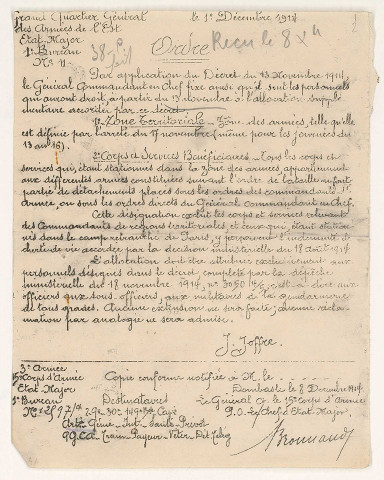 Grand Quartier Général
des Armées de l'Est
Etat-Major
1er Bureau
No 11
le 1er Décembre 1914
38
Ordre
Reçu le 8 Xbre
Par application du Décret du 13 Novembre 1914,
le Général Commandant en Chef fixe ainsi qu'il suit les personnels
qui auront droit, à partir du 13 novembre à l'allocation supplé-
mentaire accordée par ce décret
1o Zone Territoriale - Zone des armées, telle qu'elle
est définie par l'arrêté du 17 novembre (même pour les journées du
13 au 16).
2o Corps et Services Bénéficiaires - Tous les corps et
services qui, étant stationnés dans la zone des armées appartiennent
aux différentes armées constituées suivant l'ordre de bataille ou font
partie de détachements placés sous les ordres des commandants d'
armée, ou sous les ordres directs du Général Commandant en Chef.
Cette désignation exclut les corps et services relevant
des Commandants de régions territoriales, et ceux qui étant station-
nés dans le camp retranché de Paris, y perçoivent l'indemnité de
cherté de vie accordée par la décision ministérielle du 18 août 1914
L'allocation doit être attribuée exclusivement aux
personnels désignés dans le décret complété par la dépêche
ministérielle du 18 novembre 1914, no 3050 c'est à dire aux
officiers, aux sous-officiers, aux militaires de la gendarmerie
de tous grades. Aucune extension ne sera faite; aucune récla-
mation par analogie ne sera admise.
J. Joffre.
3e Armée
15e Corps d'Armée
Etat-Major
1er Bureau
Copie conforme notifiée à M. le
Dombasle le 8 Décembre 1914
Destinataires
Le Général Ct le 15e Corps d'Armée
P.O. Le Chef d'Etat-Major.
29e 30e
Art. Génie - Int. Santé Prévôt
99 Ca Train Payeur - Vétér.